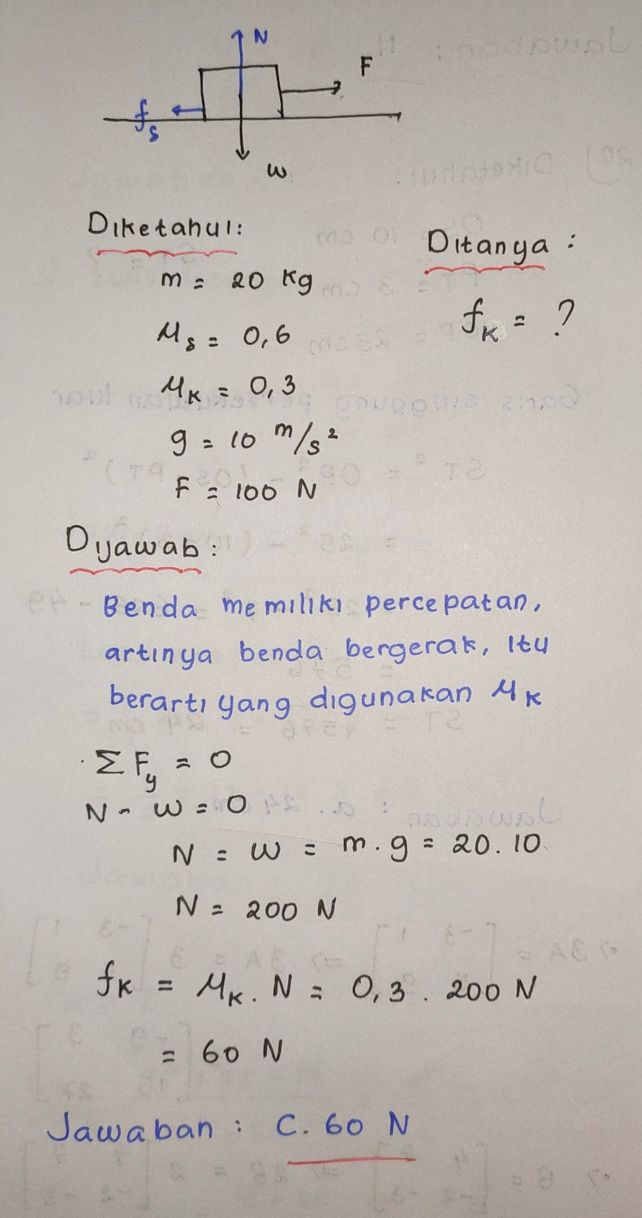 N
F
fs
w
Diketahui:
Ditanya :
m = 20 kg
fK = ?
μs = 0,6
μK = 0,3
g = 10 m/s²
F = 100 N
Dijawab :
Benda memiliki percepatan,
artinya benda bergerak, Itu
berarti yang digunakan μK
ΣFy = 0
N - w = 0
N = w = m . g = 20 . 10
N = 200 N
fK = μK . N = 0,3 . 200 N
= 60 N
Jawaban : C. 60 N